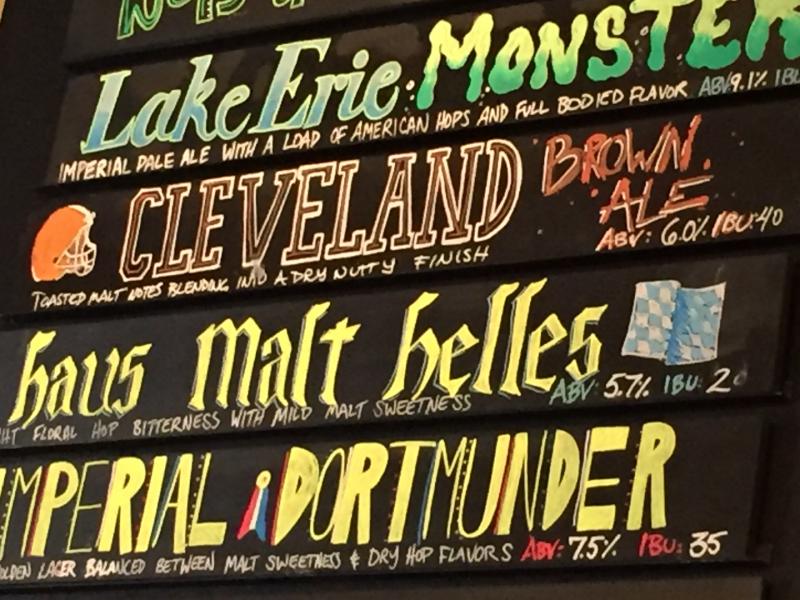 Lake Erie MONSTER
IMPERIAL PALE ALE WITH A LOAD OF AMERICAN HOPS AND FULL BODIED FLAVOR ABV 9.1%
CLEVELAND BROWN
ALE
ABV: 6.0% IBU: 40
TOASTED MALT NOTES BLENDING INTO A DRY NUTTY FINISH
haus malt helles
ABV: 5.7% IBU: 2
FLORAL HOP BITTERNESS WITH MILD MALT SWEETNESS
IMPERIAL DORTMUNDER
LAGER BALANCED BETWEEN MALT SWEETNESS & DRY HOP FLAVORS ABV: 7.5% IBU: 35